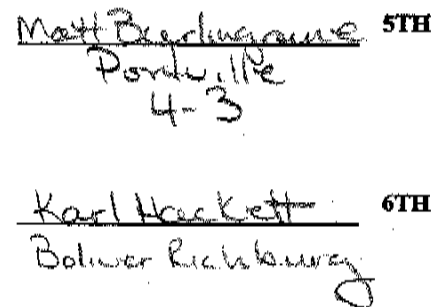 Matt Burlingame 5TH
Portville
4-3
Karl Hackett 6TH
Bolivar Richburg